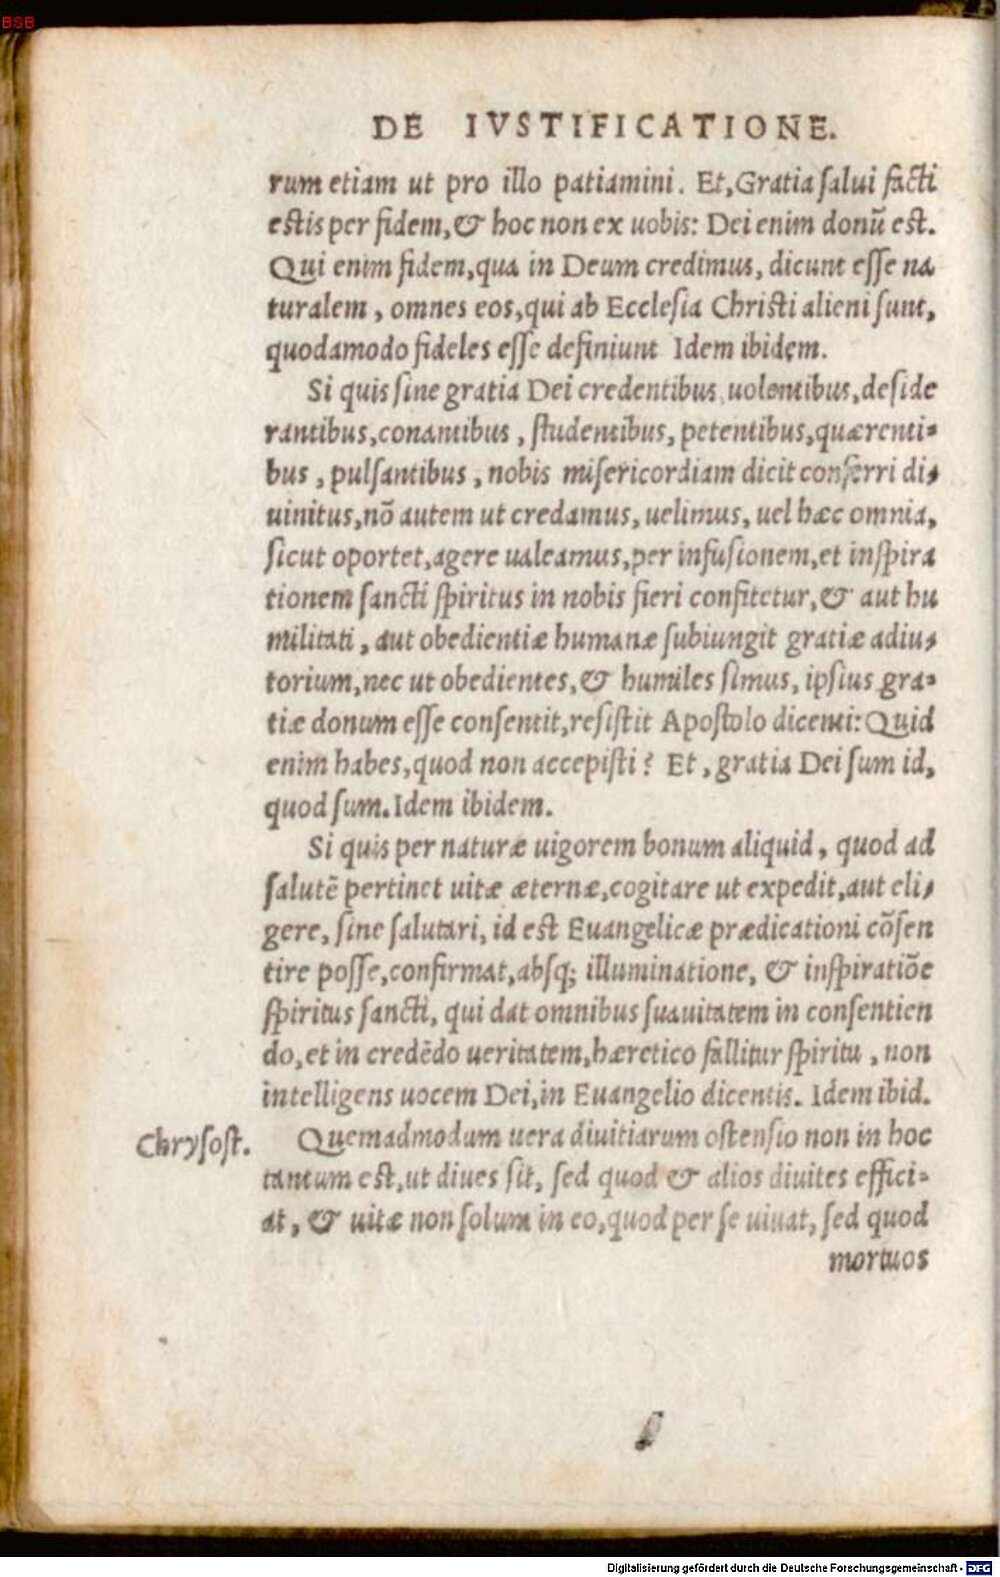 BSB
DE IVSTIFICATIONE.
rum etiam ut pro illo patiamini. Et, Gratia salui facti
estis per fidem, & hoc non ex uobis: Dei enim donū est.
Qui enim fidem, qua in Deum credimus, dicunt esse na
turalem, omnes eos, qui ab Ecclesia Christi alieni sunt,
quodamodo fideles esse definiunt Idem ibidem.
Si quis sine gratia Dei credentibus, uolentibus, deside
rantibus, conantibus, studentibus, petentibus, quærenti-
bus, pulsantibus, nobis misericordiam dicit conferri di-
uinitus, nō autem ut credamus, uelimus, uel hæc omnia,
sicut oportet, agere ualeamus, per infusionem, et inspira
tionem sancti spiritus in nobis fieri confitetur, & aut hu
militati, aut obedientiæ humanæ subiungit gratiæ adiu-
torium, nec ut obedientes, & humiles simus, ipsius gra-
tiæ donum esse consentit, resistit Apostolo dicenti: Quid
enim habes, quod non accepisti? Et, gratia Dei sum id,
quod sum. Idem ibidem.
Si quis per naturæ uigorem bonum aliquid, quod ad
salutē pertinet uitæ æternæ, cogitare ut expedit, aut eli-
gere, sine salutari, id est Euangelicæ prædicationi cōsen
tire posse, confirmat, absq; illuminatione, & inspiratiōe
spiritus sancti, qui dat omnibus suauitatem in consentien
do, et in credēdo ueritatem, hæretico fallitur spiritu, non
intelligens uocem Dei, in Euangelio dicentis. Idem ibid.
Chrysost. Quemadmodum uera diuitiarum ostensio non in hoc
tantum est, ut diues sit, sed quod & alios diuites effici-
at, & uitæ non solum in eo, quod per se uiuat, sed quod
mortuos
Digitalisierung gefördert durch die Deutsche Forschungsgemeinschaft - DFG